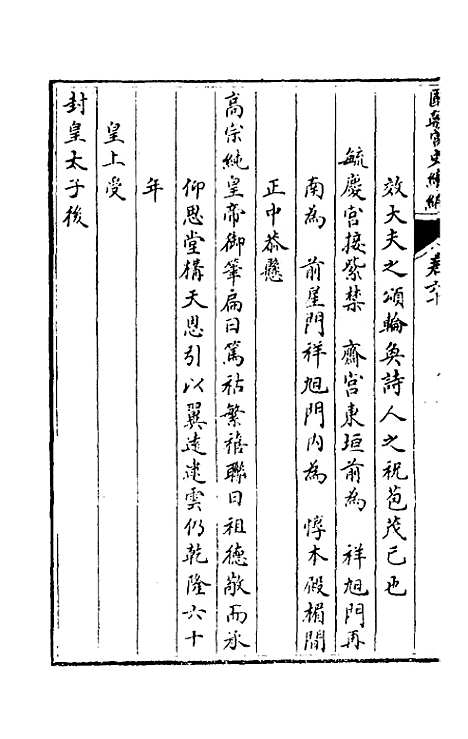 國朝宮史續編 卷六十
效大夫之頌輪奐詩人之祝苞茂已也
毓慶宮接紫禁 齋宮東垣前為 祥旭門再
南為 前星門祥旭門内為 惇本殿楣間
正中恭懸
高宗純皇帝御筆扁曰篤祜繁禧聯曰祖德敬而承
仰思堂構天恩引以翼遠逮雲仍乾隆六十
年
皇上受
封皇太子後